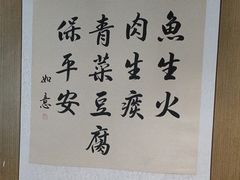 魚生火
肉生痰
青菜豆腐
保平安
如意